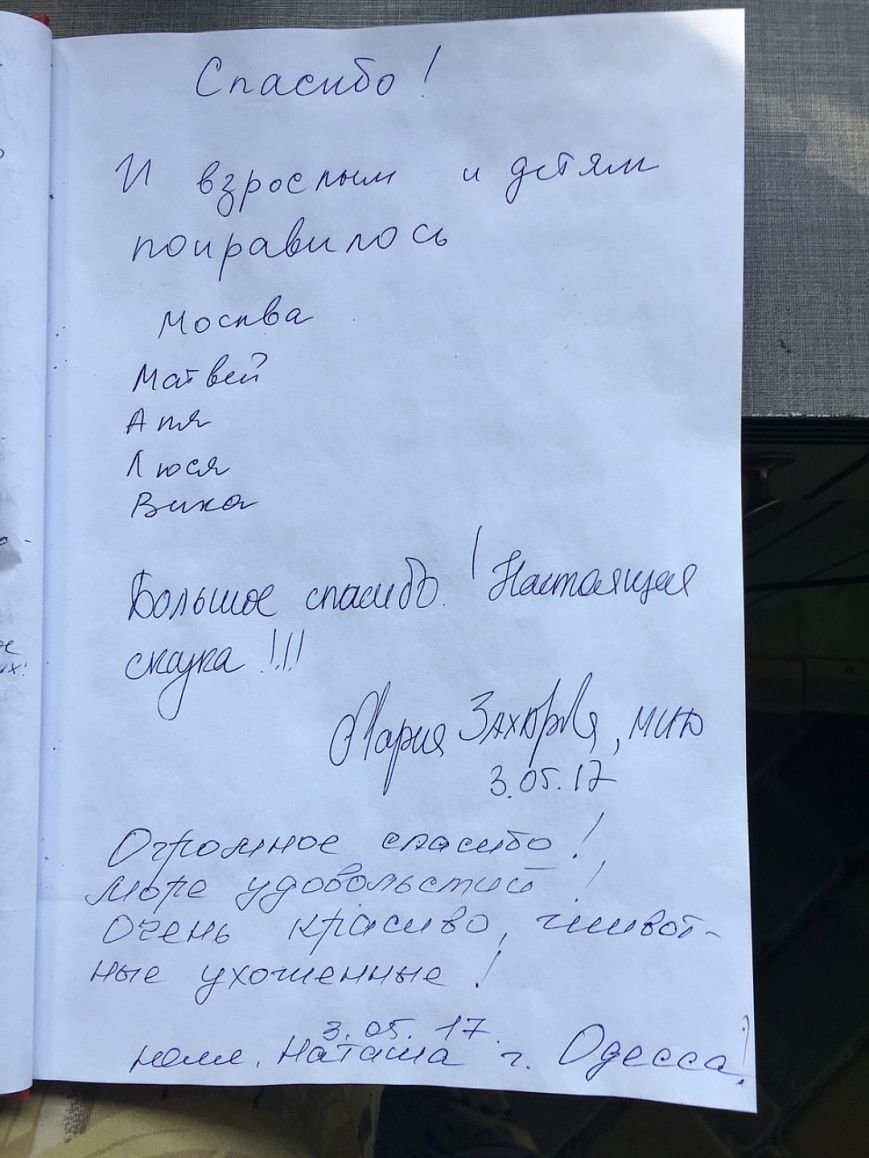 Спасибо!
И взрослым и детям
понравилось
Москва
Матвей
Аня
Люся
Вика
Большое спасибо! Настоящая
сказка!!!!
Мария Захарова, МИД
3.05.17
Огромное спасибо!
Море удовольствий!
Очень красиво, живот-
ные ухоженные!
3.05.17.
Наташа г. Одесса!